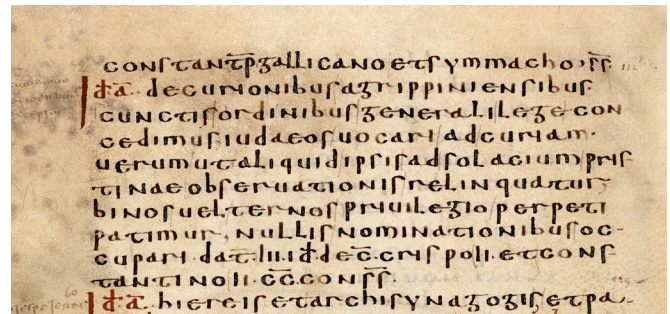 constant pp gallicano et symmacho · ss
id a · decurionibus agrippiniensibus
cunctis ordinibus generali lege con
cedimus iudaeos uocari ad curiam ·
uerum ut aliquid ipsis ad solacium pris
tinae obseruationis relinquatur
binos uel ternos priuilegio perpeti
patimur, nullis nominationibus oc-
cupari · dat · iii id dec crispo ii · et cons
tantino ii · cc · conss ·
id a · hiereis et archisynagogis et pa